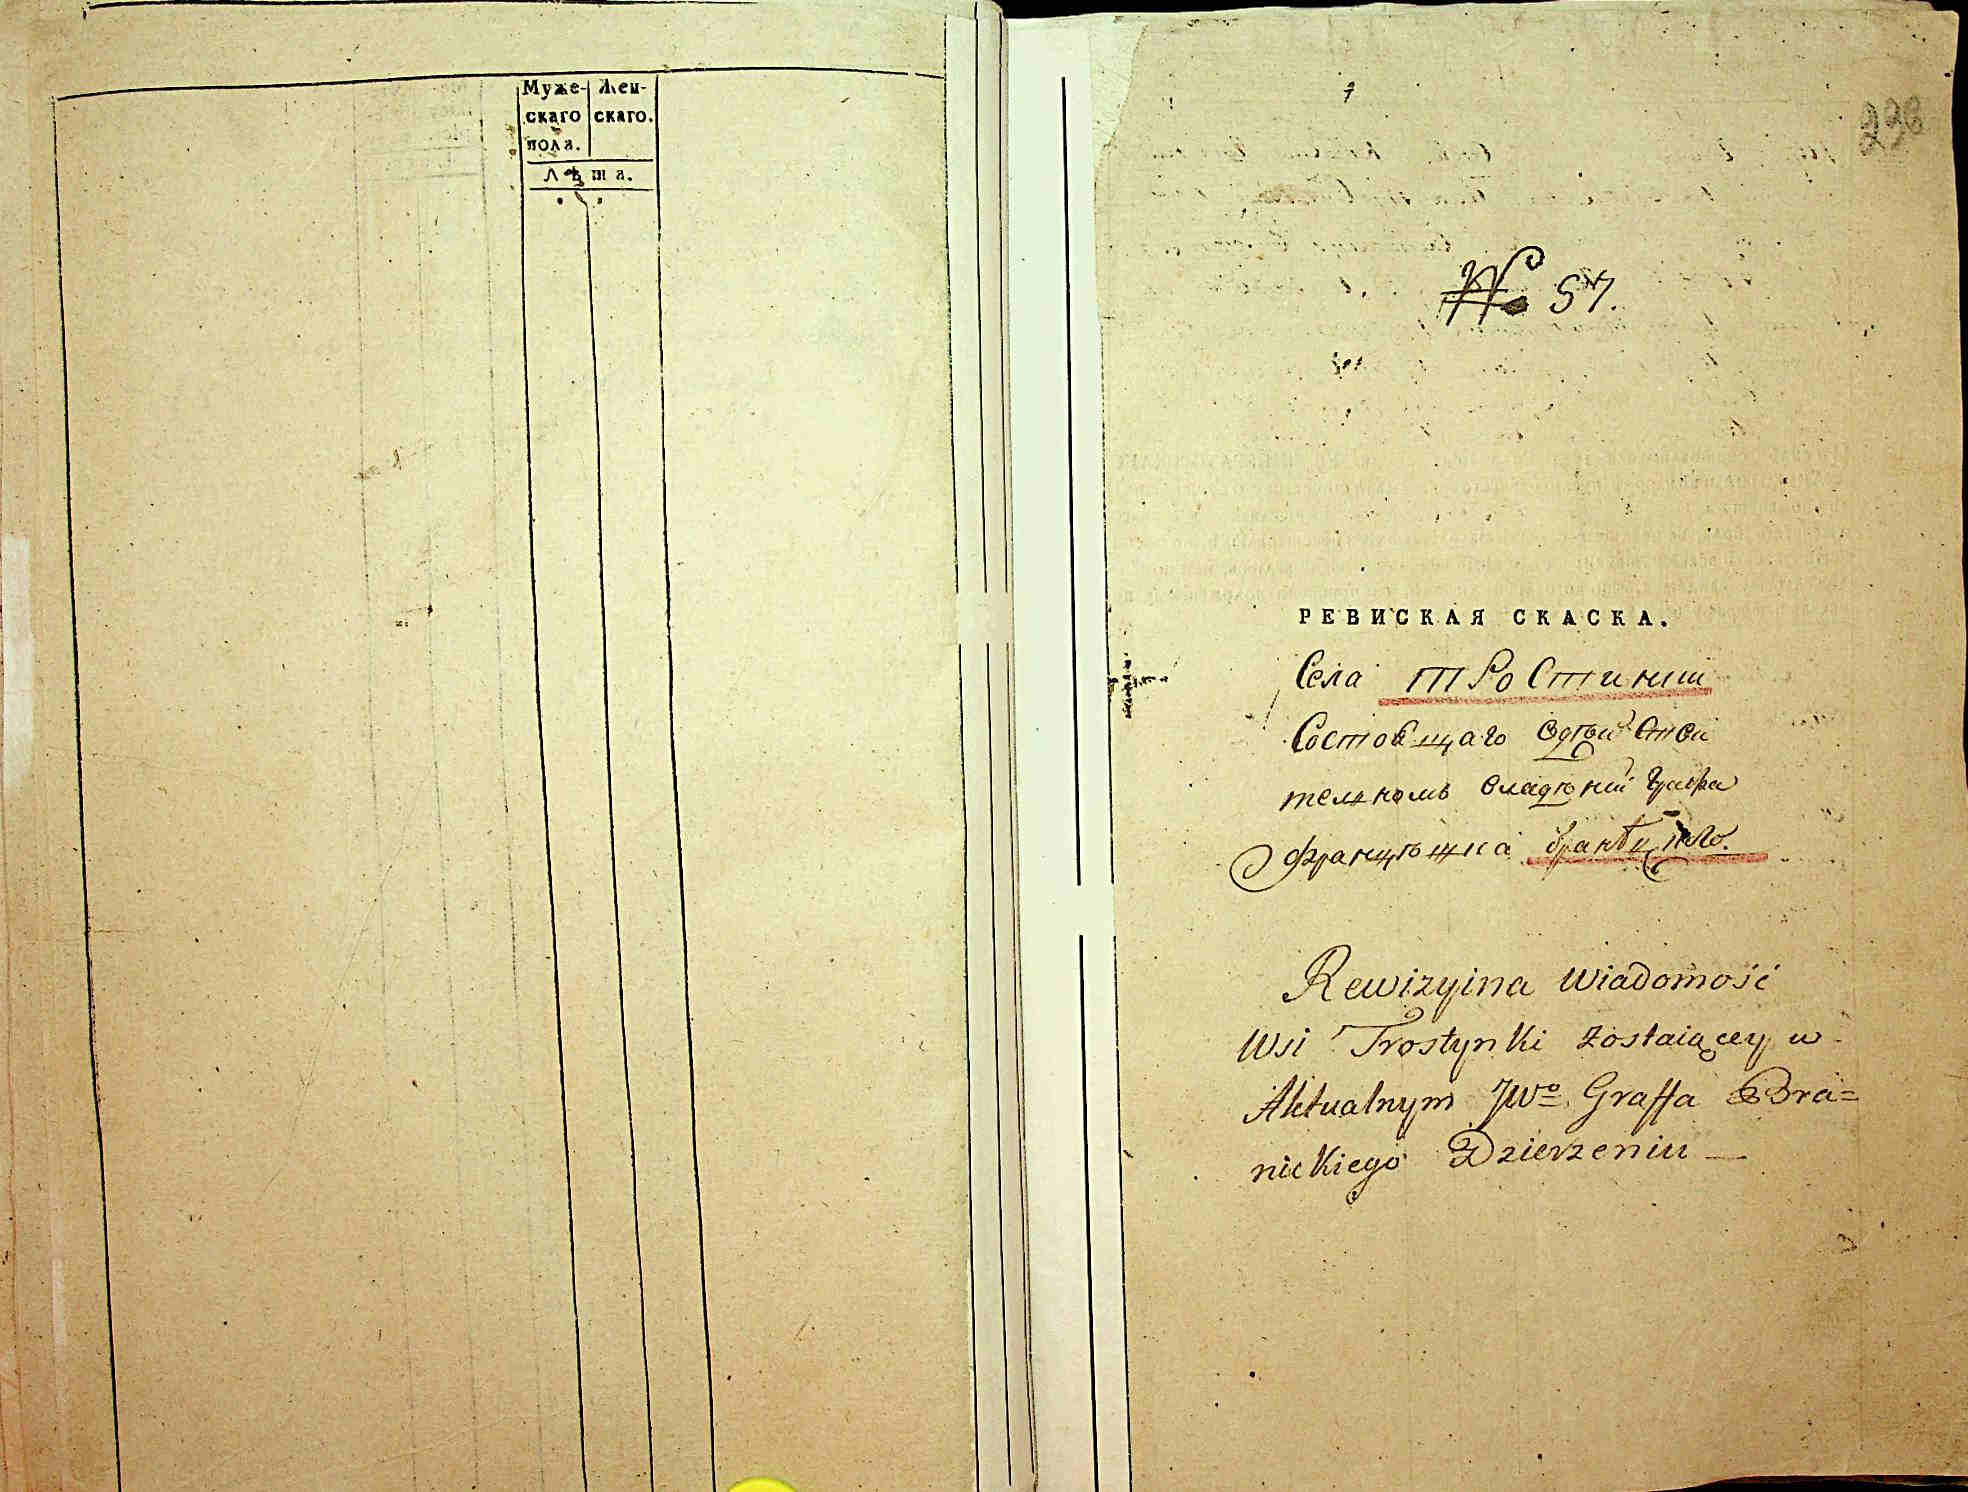 Муже- Жен-
скаго скаго.
пола.
Лѣта.
228
№ 57.
РЕВИСКАЯ СКАСКА.
Села Тростинки
Состоящаго
телномъ владении графа
францышка браницкого.
Rewizyina Wiadomość
Wsi Trostynki zostaiącey w
Aktualnym JWo Graffa Bra=
nickiego Dzierzeniu —